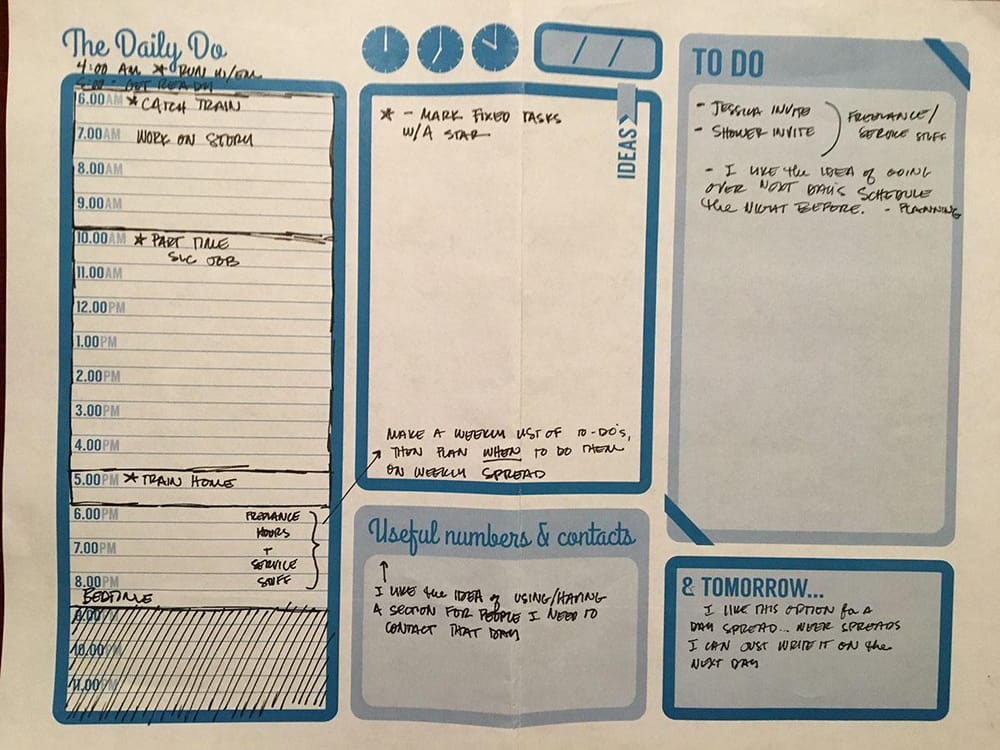 The Daily Do
4:00 AM * RUN W/EM
5:00 - GET READY
6.00AM * CATCH TRAIN
7.00AM WORK ON STORY
8.00AM
9.00AM
10.00AM * PART TIME
SLC JOB
11.00AM
12.00PM
1.00PM
2.00PM
3.00PM
4.00PM
5.00PM * TRAIN HOME
6.00PM FREELANCE
HOURS
7.00PM +
SERVICE
8.00PM STUFF
BEDTIME
9.00PM
10.00PM
11.00PM
/ /
IDEAS
* - MARK FIXED TASKS
W/A STAR
MAKE A WEEKLY LIST OF TO-DO'S,
THEN PLAN WHEN TO DO THEM
ON WEEKLY SPREAD
Useful numbers & contacts
I LIKE the IDEA of USING/HAVING
A SECTION FOR PEOPLE I NEED TO
CONTACT THAT DAY
TO DO
- JESSICA INVITE
- SHOWER INVITE
FREELANCE/
SERVICE STUFF
- I LIKE the IDEA of GOING
OVER NEXT DAY'S SCHEDULE
the NIGHT BEFORE. - PLANNING
& TOMORROW...
I LIKE THIS OPTION for A
DAY SPREAD... WEEK SPREADS
I CAN JUST WRITE IT ON the
NEXT DAY